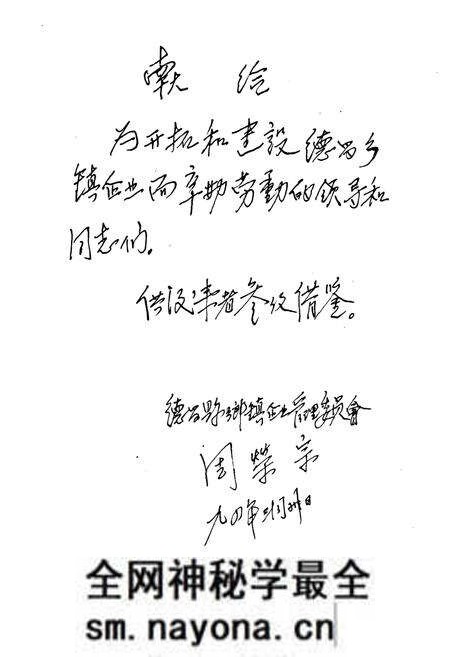 献给
为开拓和建設德昌乡
镇企业而辛勤劳動的领导和
同志们。
供汉读者参攷借鉴。
德昌縣鄉镇企业管理委員會
周荣宗
九四年二月卅日
全网神秘学最全
sm.nayona.cn